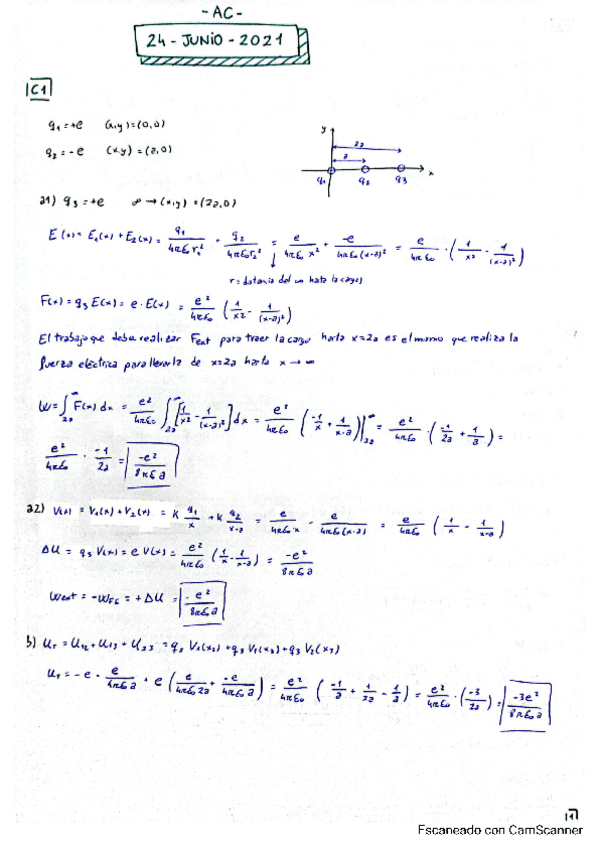 - AC -
24 - JUNIO - 2021
C1
q₁ = +e (x,y) = (0,0)
q₂ = -e (x,y) = (a,0)
y
2a
a
q₁ q₂ q₃ x
a1) q₃ = +e ∞ → (x,y) = (2a,0)
E(x) = E₁(x) + E₂(x) = q₁/4πε₀r₁² + q₂/4πε₀r₂² = e/4πε₀x² + -e/4πε₀(x-a)² = e/4πε₀ · (1/x² - 1/(x-a)²)
r = distancia del hasta la carga)
F(x) = q₃ E(x) = e · E(x) = e²/4πε₀ (1/x² - 1/(x-a)²)
El trabajo que debe realizar Fext para traer la carga hasta x=2a es el mismo que realiza la
fuerza eléctrica para llevarla de x=2a hasta x → ∞
W = ∫₂ₐ^∞ F(x) dx = e²/4πε₀ ∫₂ₐ^∞ [1/x² - 1/(x-a)²] dx = e²/4πε₀ (-1/x + 1/x-a)|₂ₐ^∞ = e²/4πε₀ · (-1/2a + 1/a) =
e²/4πε₀ · -1/2a = -e²/8πε₀a
a2) V(x) = V₁(x) + V₂(x) = K q₁/x + K q₂/x-a = e/4πε₀x - e/4πε₀(x-a) = e/4πε₀ (1/x - 1/x-a)
ΔU = q₃ V(x) = e V(x) = e²/4πε₀ (1/x - 1/x-a) = -e²/8πε₀a
Wext = -WFE = +ΔU = -e²/8πε₀a
b) U_T = U₁₂ + U₁₃ + U₂₃ = q₂ V₁(x₂) + q₃ V₁(x₃) + q₃ V₂(x₃)
U_T = -e · e/4πε₀a + e (e/4πε₀2a + -e/4πε₀a) = e²/4πε₀ (-1/a + 1/2a - 1/a) = e²/4πε₀ · (-3/2a) = -3e²/8πε₀a
1
Escaneado con CamScanner